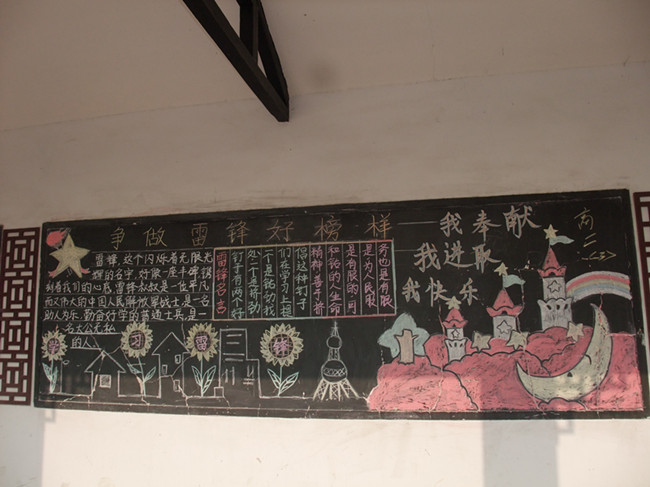 争做雷锋好榜样——我奉献
我进取
我快乐
高二
雷锋,这个闪烁着无限光
辉的名字,好像一座丰碑镌
刻着我们的心扈,雷锋叔叔是一位平凡
而又伟大的中国人民解放军战士是一名
助人为乐、勤奋好学的普通士兵,且一
名大公无私
的人
雷锋名言
钉子有两个好
处一个是挤劲
一个是钻劲我
们在学习上提
倡这种钉子
精神善于挤
和钻的人生命
是有限的可
是为人民服
务也是有限
学习雷锋